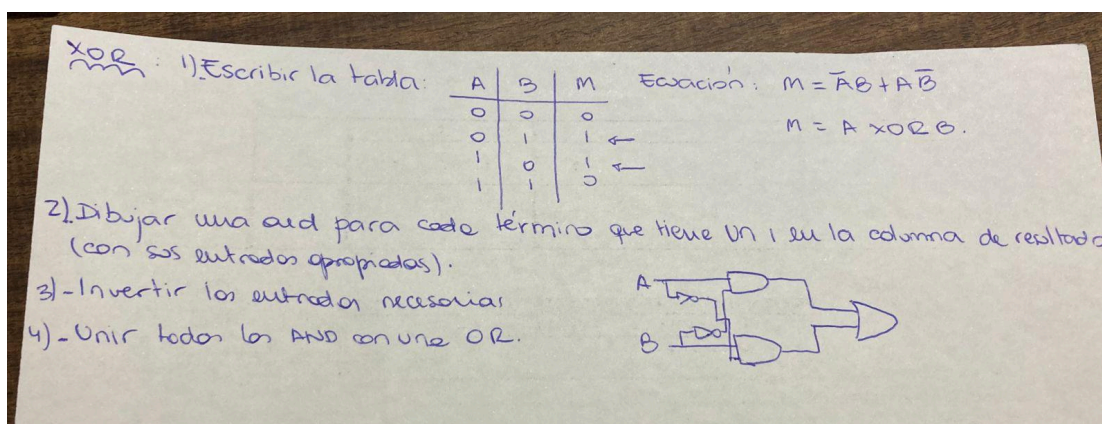 XOR: 1) Escribir la tabla: A B M Ecuación: M = A̅B + AB̅
0 0 0 M = A XOR B.
0 1 1 ←
1 0 1 ←
1 1 0
2). Dibujar una and para cada término que tiene un 1 en la columna de resultado
(con sus entradas apropiadas).
3) - Invertir las entradas necesarias
4) - Unir todos los AND con una OR.
A
B